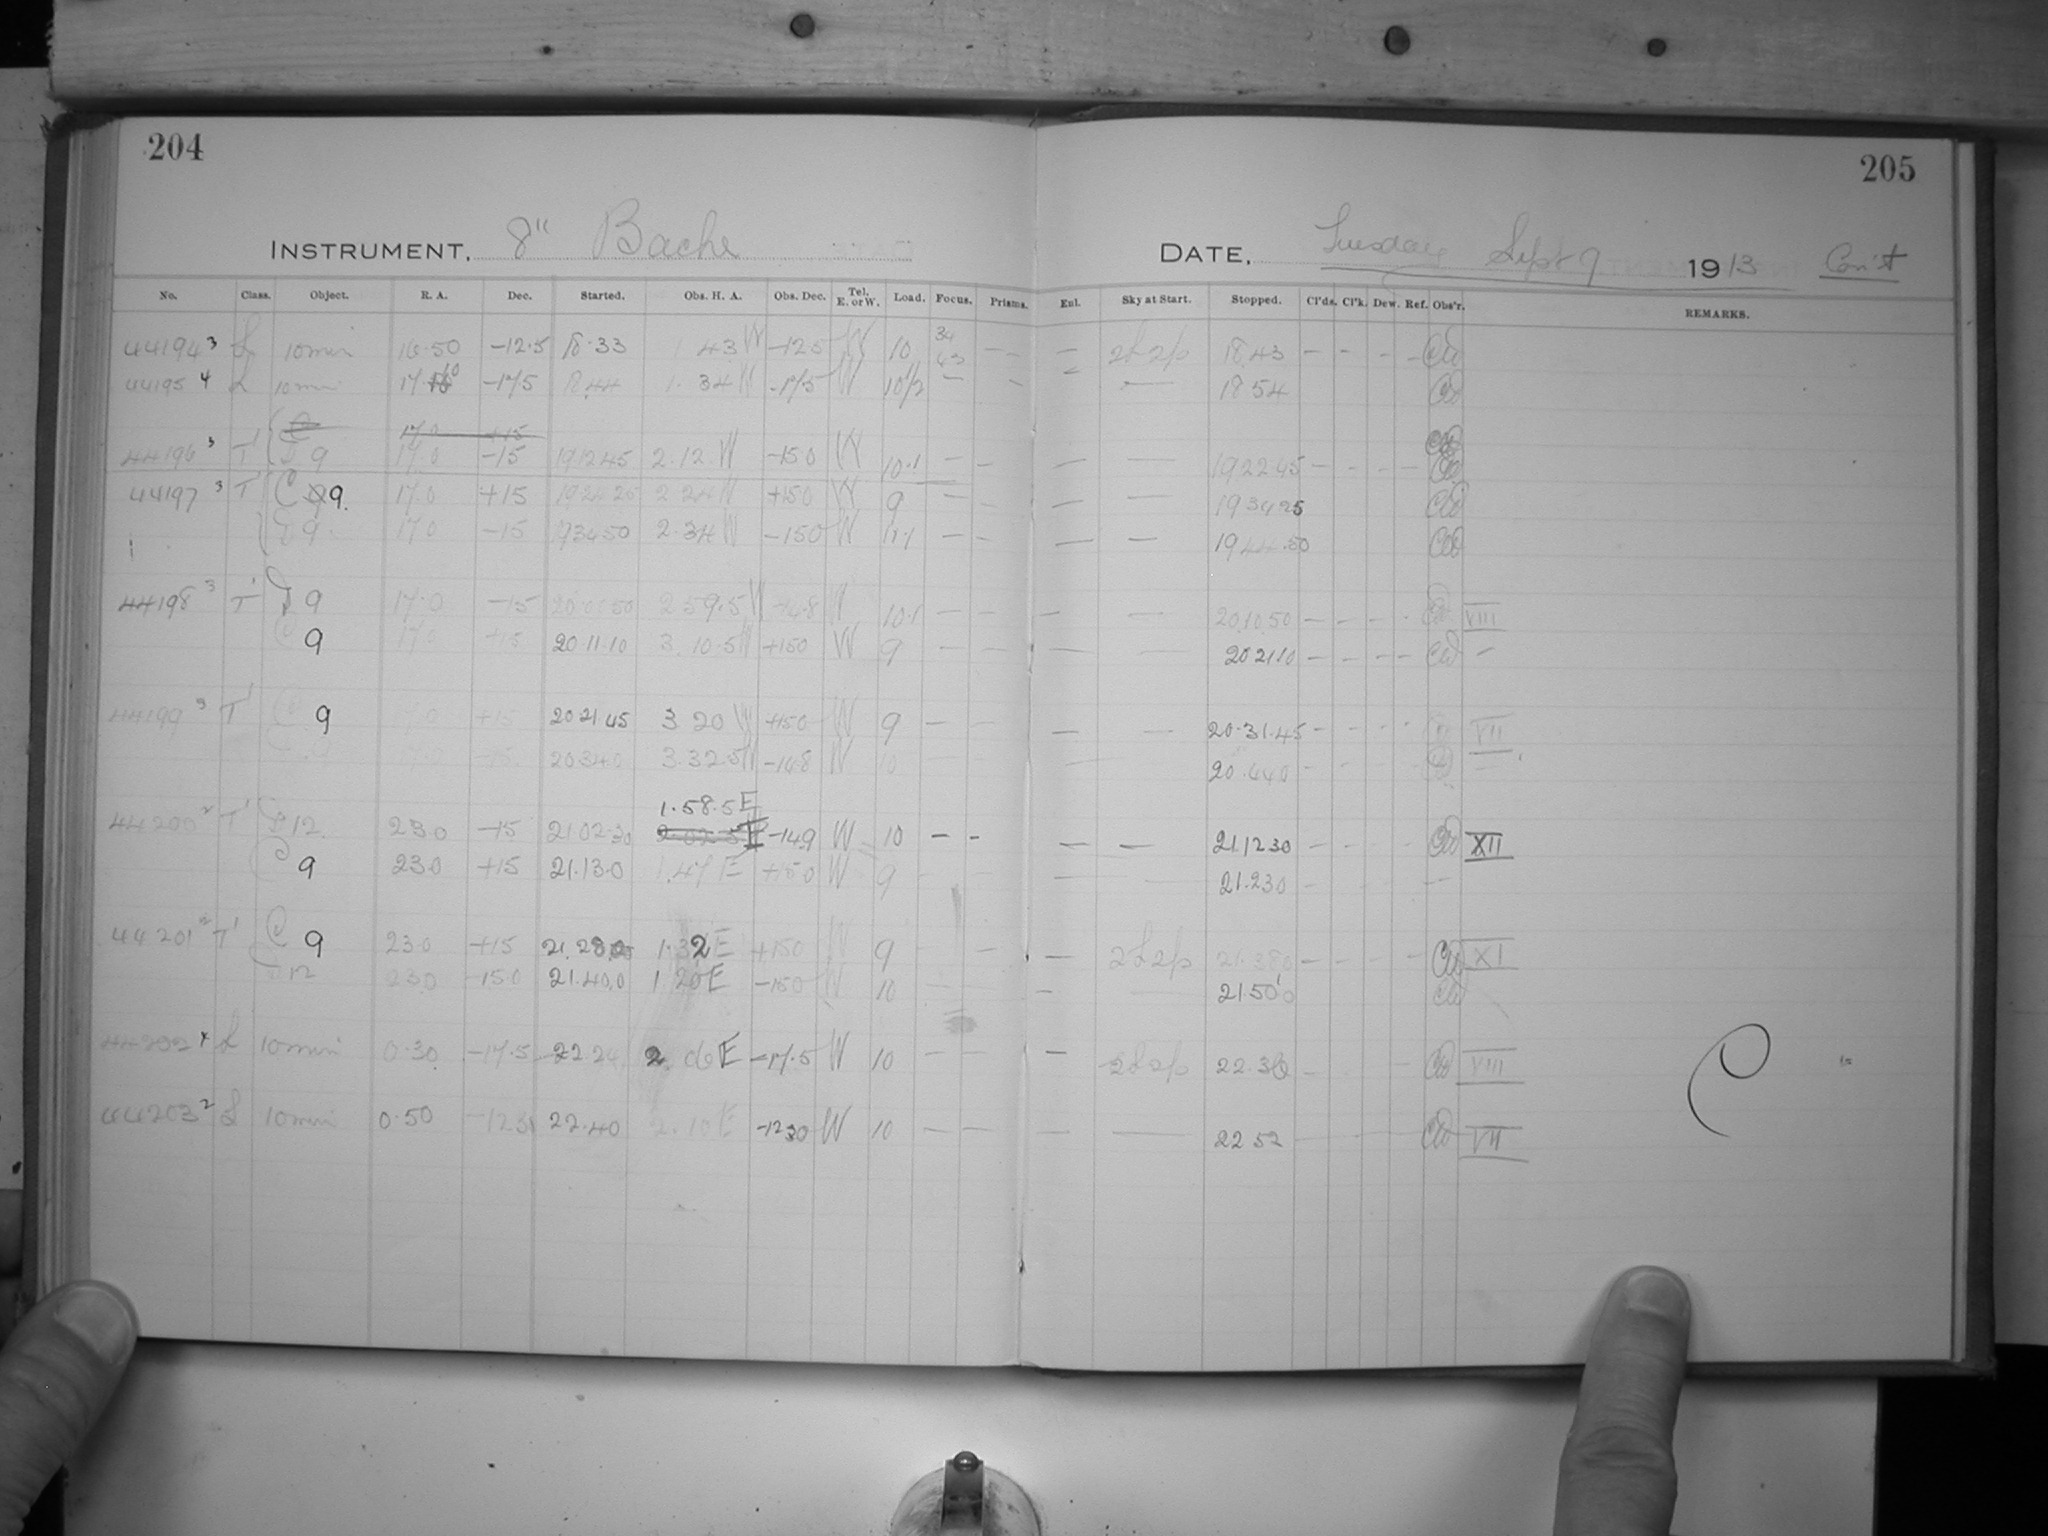 204
205
INSTRUMENT, 8" Bache
DATE, Tuesday Sept 9 1913 Con't
No. Class. Object. R. A. Dec. Started. Obs. H. A. Obs. Dec. Tel. E. or W. Load. Focus. Prisms. Enl. Sky at Start. Stopped. Cl'ds. Cl'k. Dew. Ref. Obs'r. REMARKS.
44194 3 L 10 min 16.50 -12.5 18.33 1 43 W -12.5 W 10 34 43 — — 18.43 - - - -
44195 4 L 10 min 17.10 -17.5 18.44 1.34 W -17.5 W 10 1/2 — - — 18 54
17.0 +15
44196 3 T' 9 17.0 -15 191245 2.12 W -150 W 10.1 — - — — 192245 - -
44197 3 T' C 9. 17.0 +15 192425 2 24 W +150 W 9 — - — — 193425
9 17.0 -15 193450 2.34 W -150 W — - — — 1944.50
44198 3 T' 9 17.0 -15 20.00 50 2 59.5 W -14.8 W 10.1 — - — — 20.10.50 - - - - VIII
9 17.0 +15 20.11.10 3.10.5 W +150 W 9 — - — — 20 21 10 - - - - -
44199 3 T' 9 17.0 +15 20 21 45 3 20 W +150 W 9 — - — — 20.31.45 - - - - VII
-15 20.34.0 3.32.5 W -14.8 W 10 — — 20.44.0 -
1.58.5 E
44200 2 T' 12 23.0 -15 21 02.30 -149 W 10 — - — — 21.12 30 - - - - XII
C 9 23.0 +15 21.13.0 1.47 E +150 W 9 — — 21.23.0
44201 2 T' C 9 23.0 +15 21.28.0 1.32 E +150 W 9 - — 21.38.0 - - - - XI
12 23.0 -15.0 21.40.0 1 20 E -150 W 10 — 21.50.0
44202 4 L 10 min 0.30 -17.5 22.24 2.06 E -17.5 W 10 — — — 22.36 - VIII
44203 2 L 10 min 0.50 22.40 2.10 E -12 30 W 10 — — — — 22 52 VII